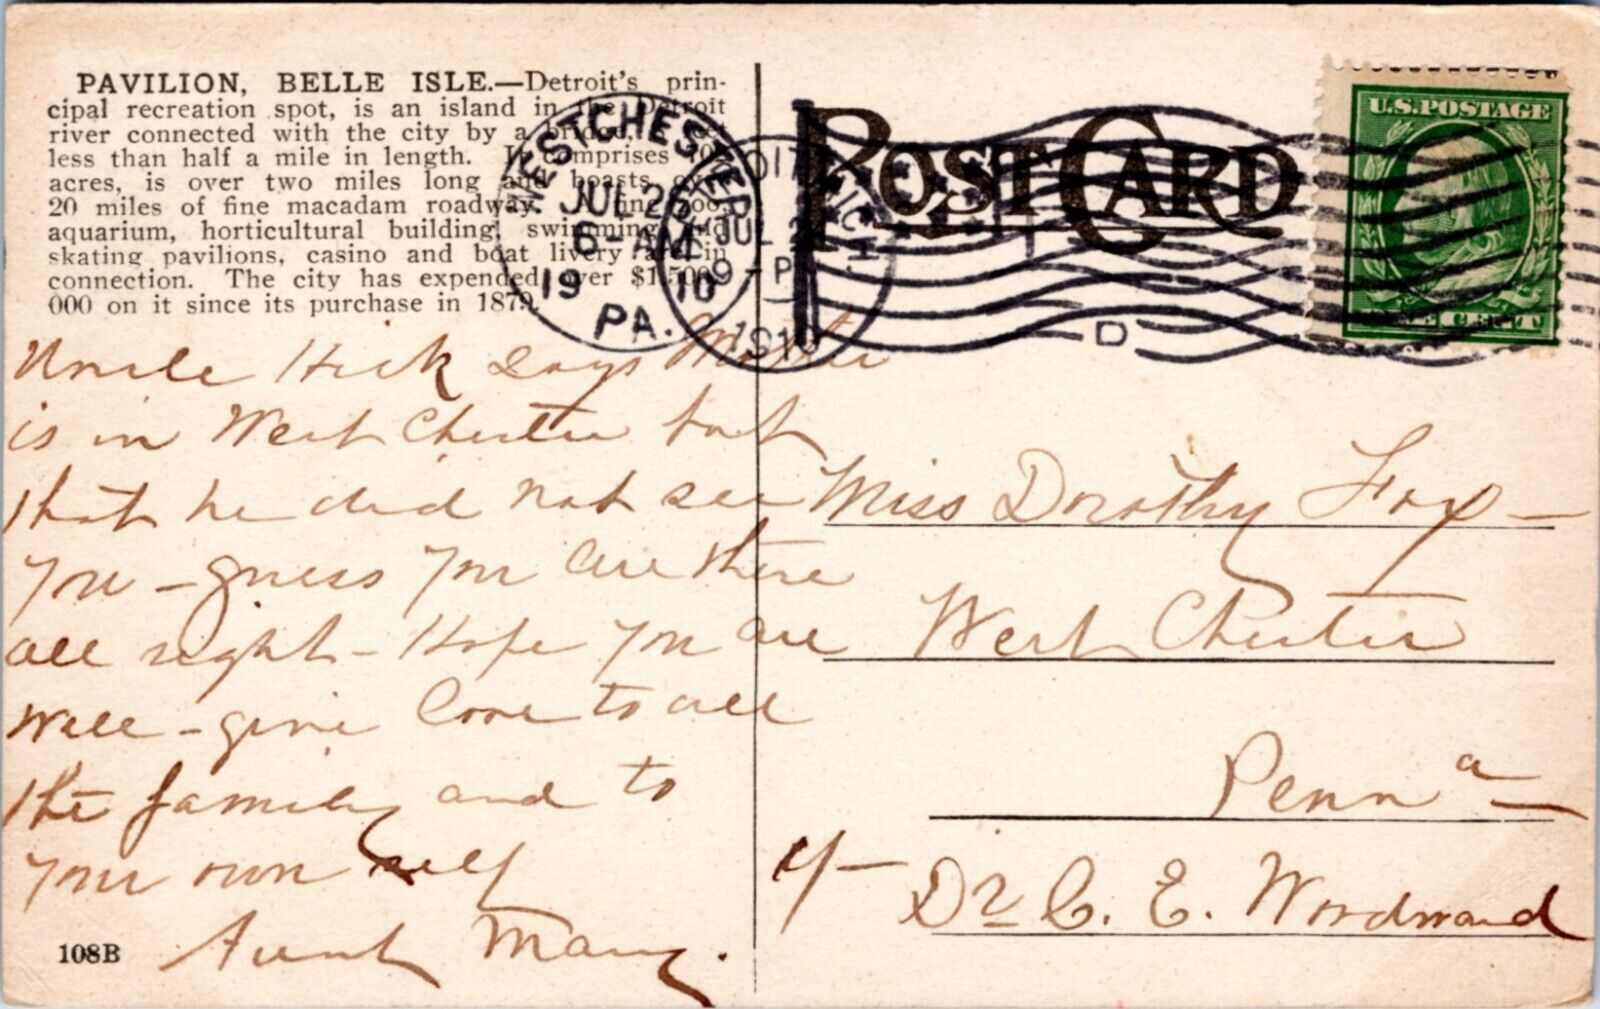 PAVILION, BELLE ISLE.—Detroit's prin-
cipal recreation spot, is an island in the Detroit
river connected with the city by a bridge,
less than half a mile in length. It comprises
acres, is over two miles long and boasts
20 miles of fine macadam roadway. A fine zoo,
aquarium, horticultural building, swimming and
skating pavilions, casino and boat livery are in
connection. The city has expended over $1,500,
000 on it since its purchase in 1879.
WESTCHESTER
JUL 26
6-AM
19 10
PA.
DETROIT, MICH.
JUL 2
9-P
1910
D
POST CARD
U.S. POSTAGE
ONE CENT
Uncle Hick says Mother
is in West Chester but
that he did not see
you - guess you are there
all right - Hope you are
well - give love to all
the family and to
your own self
Aunt Mary.
Miss Dorothy Fox -
West Chester
Penna
c/-
Dr C. E. Woodward
108B